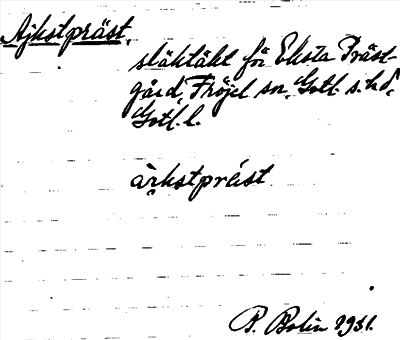 Ajkstpräst,
släktäkt för Eksta Präst-
gård, Fröjel sn, Gotl. s. hd,
Gotl. l.
àrkstpräist
P. Bolin 1931.